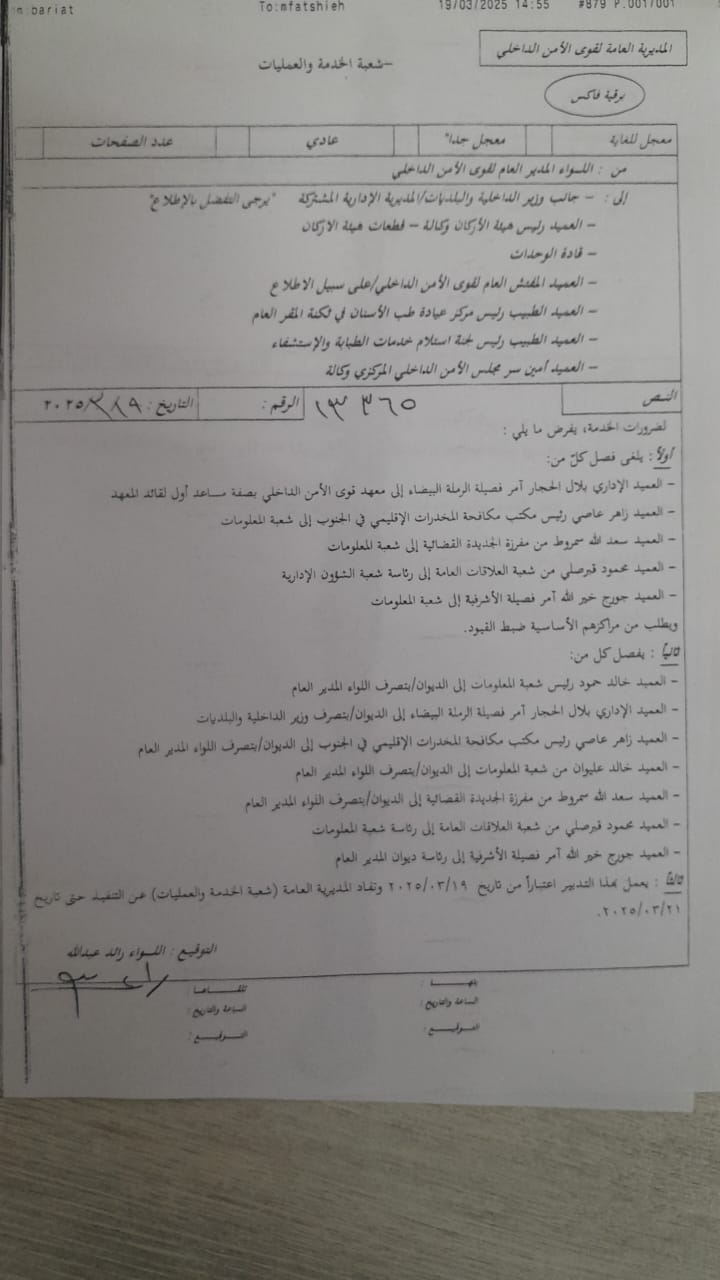 n:bariat To:mfatshieh 19/03/2025 14:55 #879 P.001/001
المديرية العامة لقوى الأمن الداخلي
-شعبة الخدمة والعمليات
برقية فاكس
معجل للغاية معجل جداً عادي عدد الصفحات
من : اللواء المدير العام لقوى الأمن الداخلي
إلى : - جانب وزير الداخلية والبلديات/المديرية الإدارية المشتركة "يرجى التفضل بالإطلاع"
- العميد رئيس هيئة الأركان وكالة - قطعات هيئة الاركان
- قادة الوحدات
- العميد المفتش العام لقوى الأمن الداخلي/على سبيل الاطلاع
- العميد الطبيب رئيس مركز عيادة طب الأسنان في ثكنة المقر العام
- العميد الطبيب رئيس لجنة استلام خدمات الطبابة والإستشفاء
- العميد أمين سر مجلس الأمن الداخلي المركزي وكالة
النص الرقم : ١٣٣٦٥ التاريخ : ٢٠٢٥/٣/١٩
لضرورات الخدمة، يفرض ما يلي :
أولاً : يلغى فصل كلّ من:
- العميد الإداري بلال الحجار آمر فصيلة الرملة البيضاء إلى معهد قوى الأمن الداخلي بصفة مساعد أول لقائد المعهد
- العميد زاهر عاصي رئيس مكتب مكافحة المخدرات الإقليمي في الجنوب إلى شعبة المعلومات
- العميد سعد الله سمروط من مفرزة الجديدة القضائية إلى شعبة المعلومات
- العميد محمود قبرصلي من شعبة العلاقات العامة إلى رئاسة شعبة الشؤون الإدارية
- العميد جورج خير الله آمر فصيلة الأشرفية إلى شعبة المعلومات
ويطلب من مراكزهم الأساسية ضبط القيود.
ثانياً : يفصل كل من:
- العميد خالد حمود رئيس شعبة المعلومات إلى الديوان/بتصرف اللواء المدير العام
- العميد الإداري بلال الحجار آمر فصيلة الرملة البيضاء إلى الديوان/بتصرف وزير الداخلية والبلديات
- العميد زاهر عاصي رئيس مكتب مكافحة المخدرات الإقليمي في الجنوب إلى الديوان/بتصرف اللواء المدير العام
- العميد خالد عليوان من شعبة المعلومات إلى الديوان/بتصرف اللواء المدير العام
- العميد سعد الله سمروط من مفرزة الجديدة القضائية إلى الديوان/بتصرف اللواء المدير العام
- العميد محمود قبرصلي من شعبة العلاقات العامة إلى رئاسة شعبة المعلومات
- العميد جورج خير الله آمر فصيلة الأشرفية إلى رئاسة ديوان المدير العام
ثالثاً : يعمل بهذا التدبير اعتباراً من تاريخ ٢٠٢٥/٠٣/١٩ وتفاد المديرية العامة (شعبة الخدمة والعمليات) عن التنفيذ حتى تاريخ
٢٠٢٥/٠٣/٢١.
التوقيع : اللواء رائد عبدالله
بلغـهـا : تلقـاهـا :
الساعة والتاريخ : الساعة والتاريخ :
التـوقـيـع : التـوقـيـع :